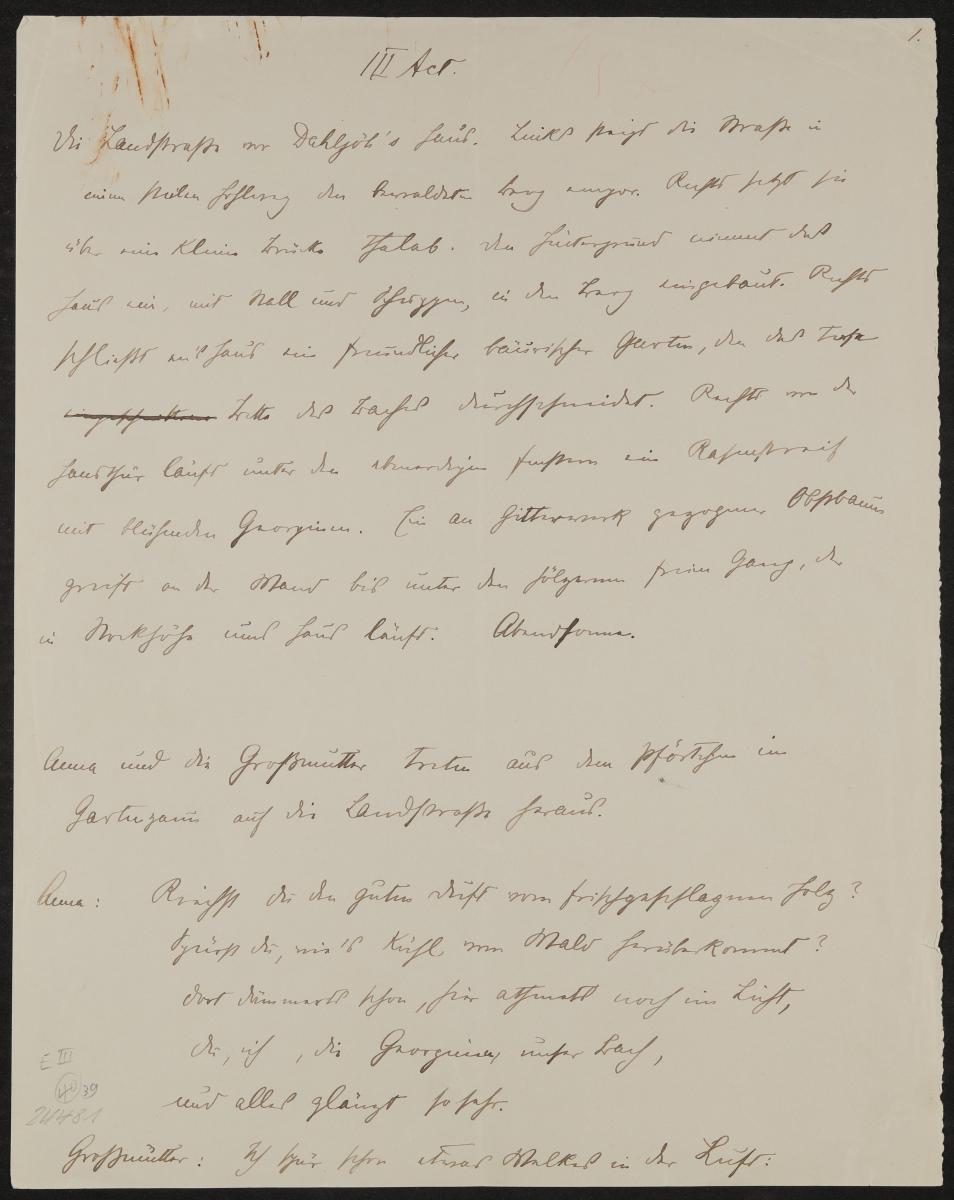 1.
III Act.
Die Landstraße vor Dahljöh's Haus. Links steigt die Straße in
einem steilen Hohlweg den bewaldeten Berg empor. Rechts setzt sie
über eine kleine Brücke thalab. Den Hintergrund nimmt das
Haus ein, mit Stall und Schuppen, in den Berg eingebaut. Rechts
schließt an's Haus ein freundlicher bäurischer Garten, den das tiefe
Bette des Baches durchschneidet. Rechts von der
Hausthür läuft unter den ebenerdigen Fenstern ein Rasenstreif
mit blühenden Georginen. Ein an Gitterwerk gezogener Obstbaum
greift an der Wand bis unter den hölzernen freien Gang, der
in Stockhöhe ums Haus läuft. Abendsonne.
Anna und die Großmutter treten aus dem Pförtchen im
Gartenzaun auf die Landstraße heraus.
Anna: Riechst du den guten Duft vom frischgeschlagenen Holz?
Spürst du, wie's kühl vom Wald herüberkommt?
Dort dämmerts schon, hier athmets noch im Licht,
du, ich, die Georginen, unser Bach,
und alles glänzt so sehr.
Großmutter: Ich spür schon etwas Welkes in der Luft:
E III
39
24481